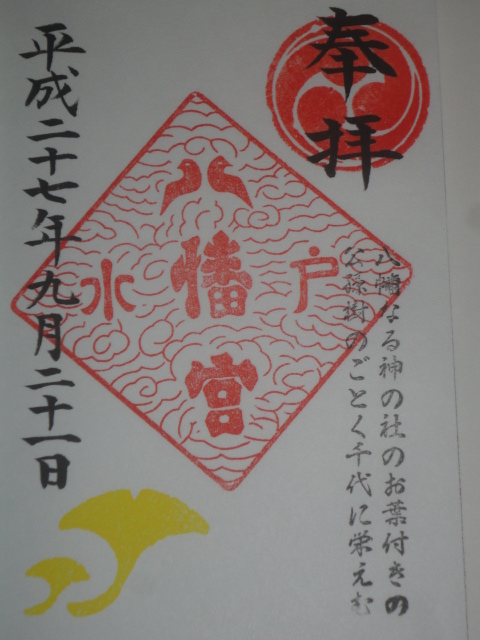 奉拝
八幡なる神の社のお葉付きの
公孫樹のごとく千代に栄えむ
八幡宮
水戸
平成二十七年九月二十一日